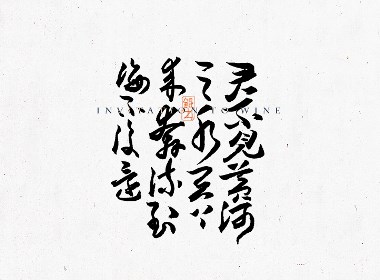 君不见黄河
之水天上
来奔流到
海不复还
INVITATION TO WINE